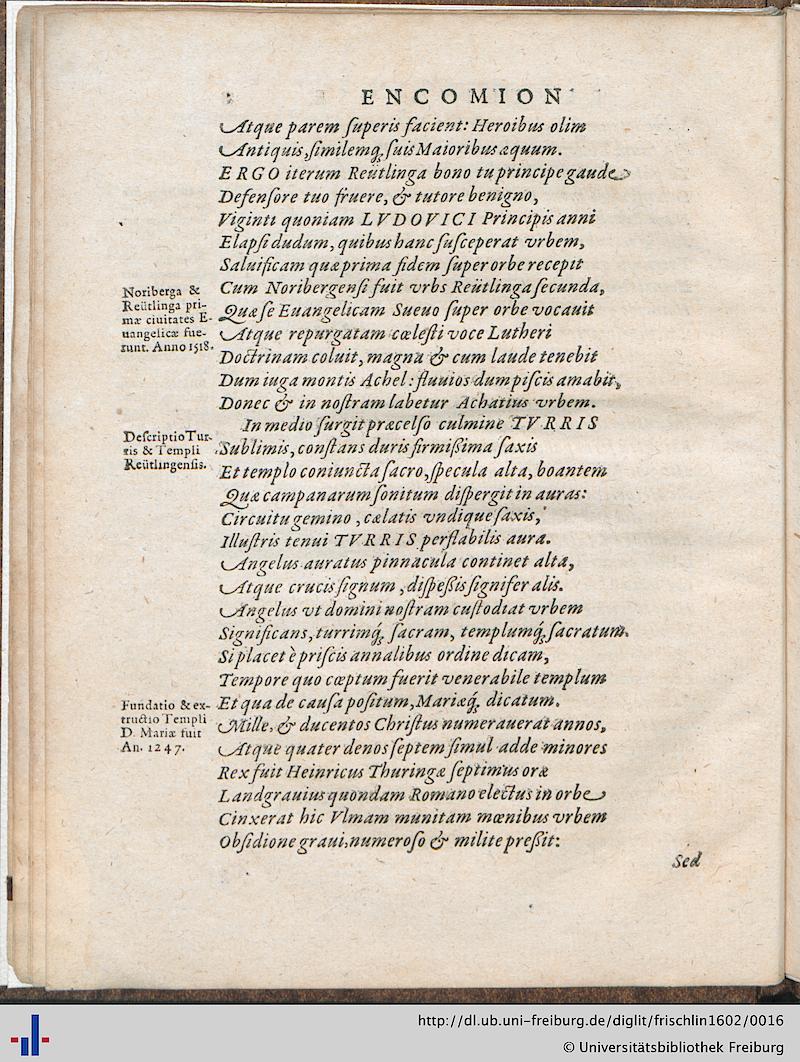 ENCOMION
Atque parem ſuperis facient: Heroibus olim
Antiquis, ſimilemq́; ſuis Maioribus æquum.
ERGO iterum Reütlinga bono tu principe gaude
Defenſore tuo fruere, & tutore benigno,
Viginti quoniam LVDOVICI Principis anni
Elapſi dudum, quibus hanc ſuſceperat vrbem,
Saluificam quæ prima fidem ſuper orbe recepit
Noriberga &
Reütlinga pri-
mæ ciuitates E-
uangelicæ fue-
runt. Anno 1518.
Cum Noribergenſi fuit vrbs Reütlinga ſecunda,
Quæ ſe Euangelicam Sueuo ſuper orbe vocauit
Atque repurgatam cœleſti voce Lutheri
Doctrinam coluit, magna & cum laude tenebit
Dum iuga montis Achel: fluuios dum piſcis amabit,
Donec & in noſtram labetur Achatius vrbem.
In medio ſurgit præcelſo culmine TVRRIS
Deſcriptio Tur-
ris & Templi
Reütlingenſis.
Sublimis, conſtans duris firmißima ſaxis
Et templo coniuncta ſacro, ſpecula alta, boantem
Quæ campanarum ſonitum diſpergit in auras:
Circuitu gemino, cælatis vndique ſaxis,
Illuſtris tenui TVRRIS perflabilis aura.
Angelus auratus pinnacula continet alta,
Atque crucis ſignum, diſpeßis ſignifer alis.
Angelus vt domini noſtram cuſtodiat vrbem
Significans, turrimq́; ſacram, templumq́; ſacratum.
Si placet è priſcis annalibus ordine dicam,
Tempore quo cœptum fuerit venerabile templum
Fundatio & ex-
tructio Templi
D. Mariæ fuit
An. 1247.
Et qua de cauſa poſitum, Mariæq́; dicatum.
Mille, & ducentos Chriſtus numerauerat annos,
Atque quater denos ſeptem ſimul adde minores
Rex fuit Heinricus Thuringæ ſeptimus oræ
Landgrauius quondam Romano electus in orbe
Cinxerat hic Vlmam munitam mœnibus vrbem
Obſidione graui, numeroſo & milite preßit:
Sed
http://dl.ub.uni-freiburg.de/diglit/frischlin1602/0016
© Universitätsbibliothek Freiburg